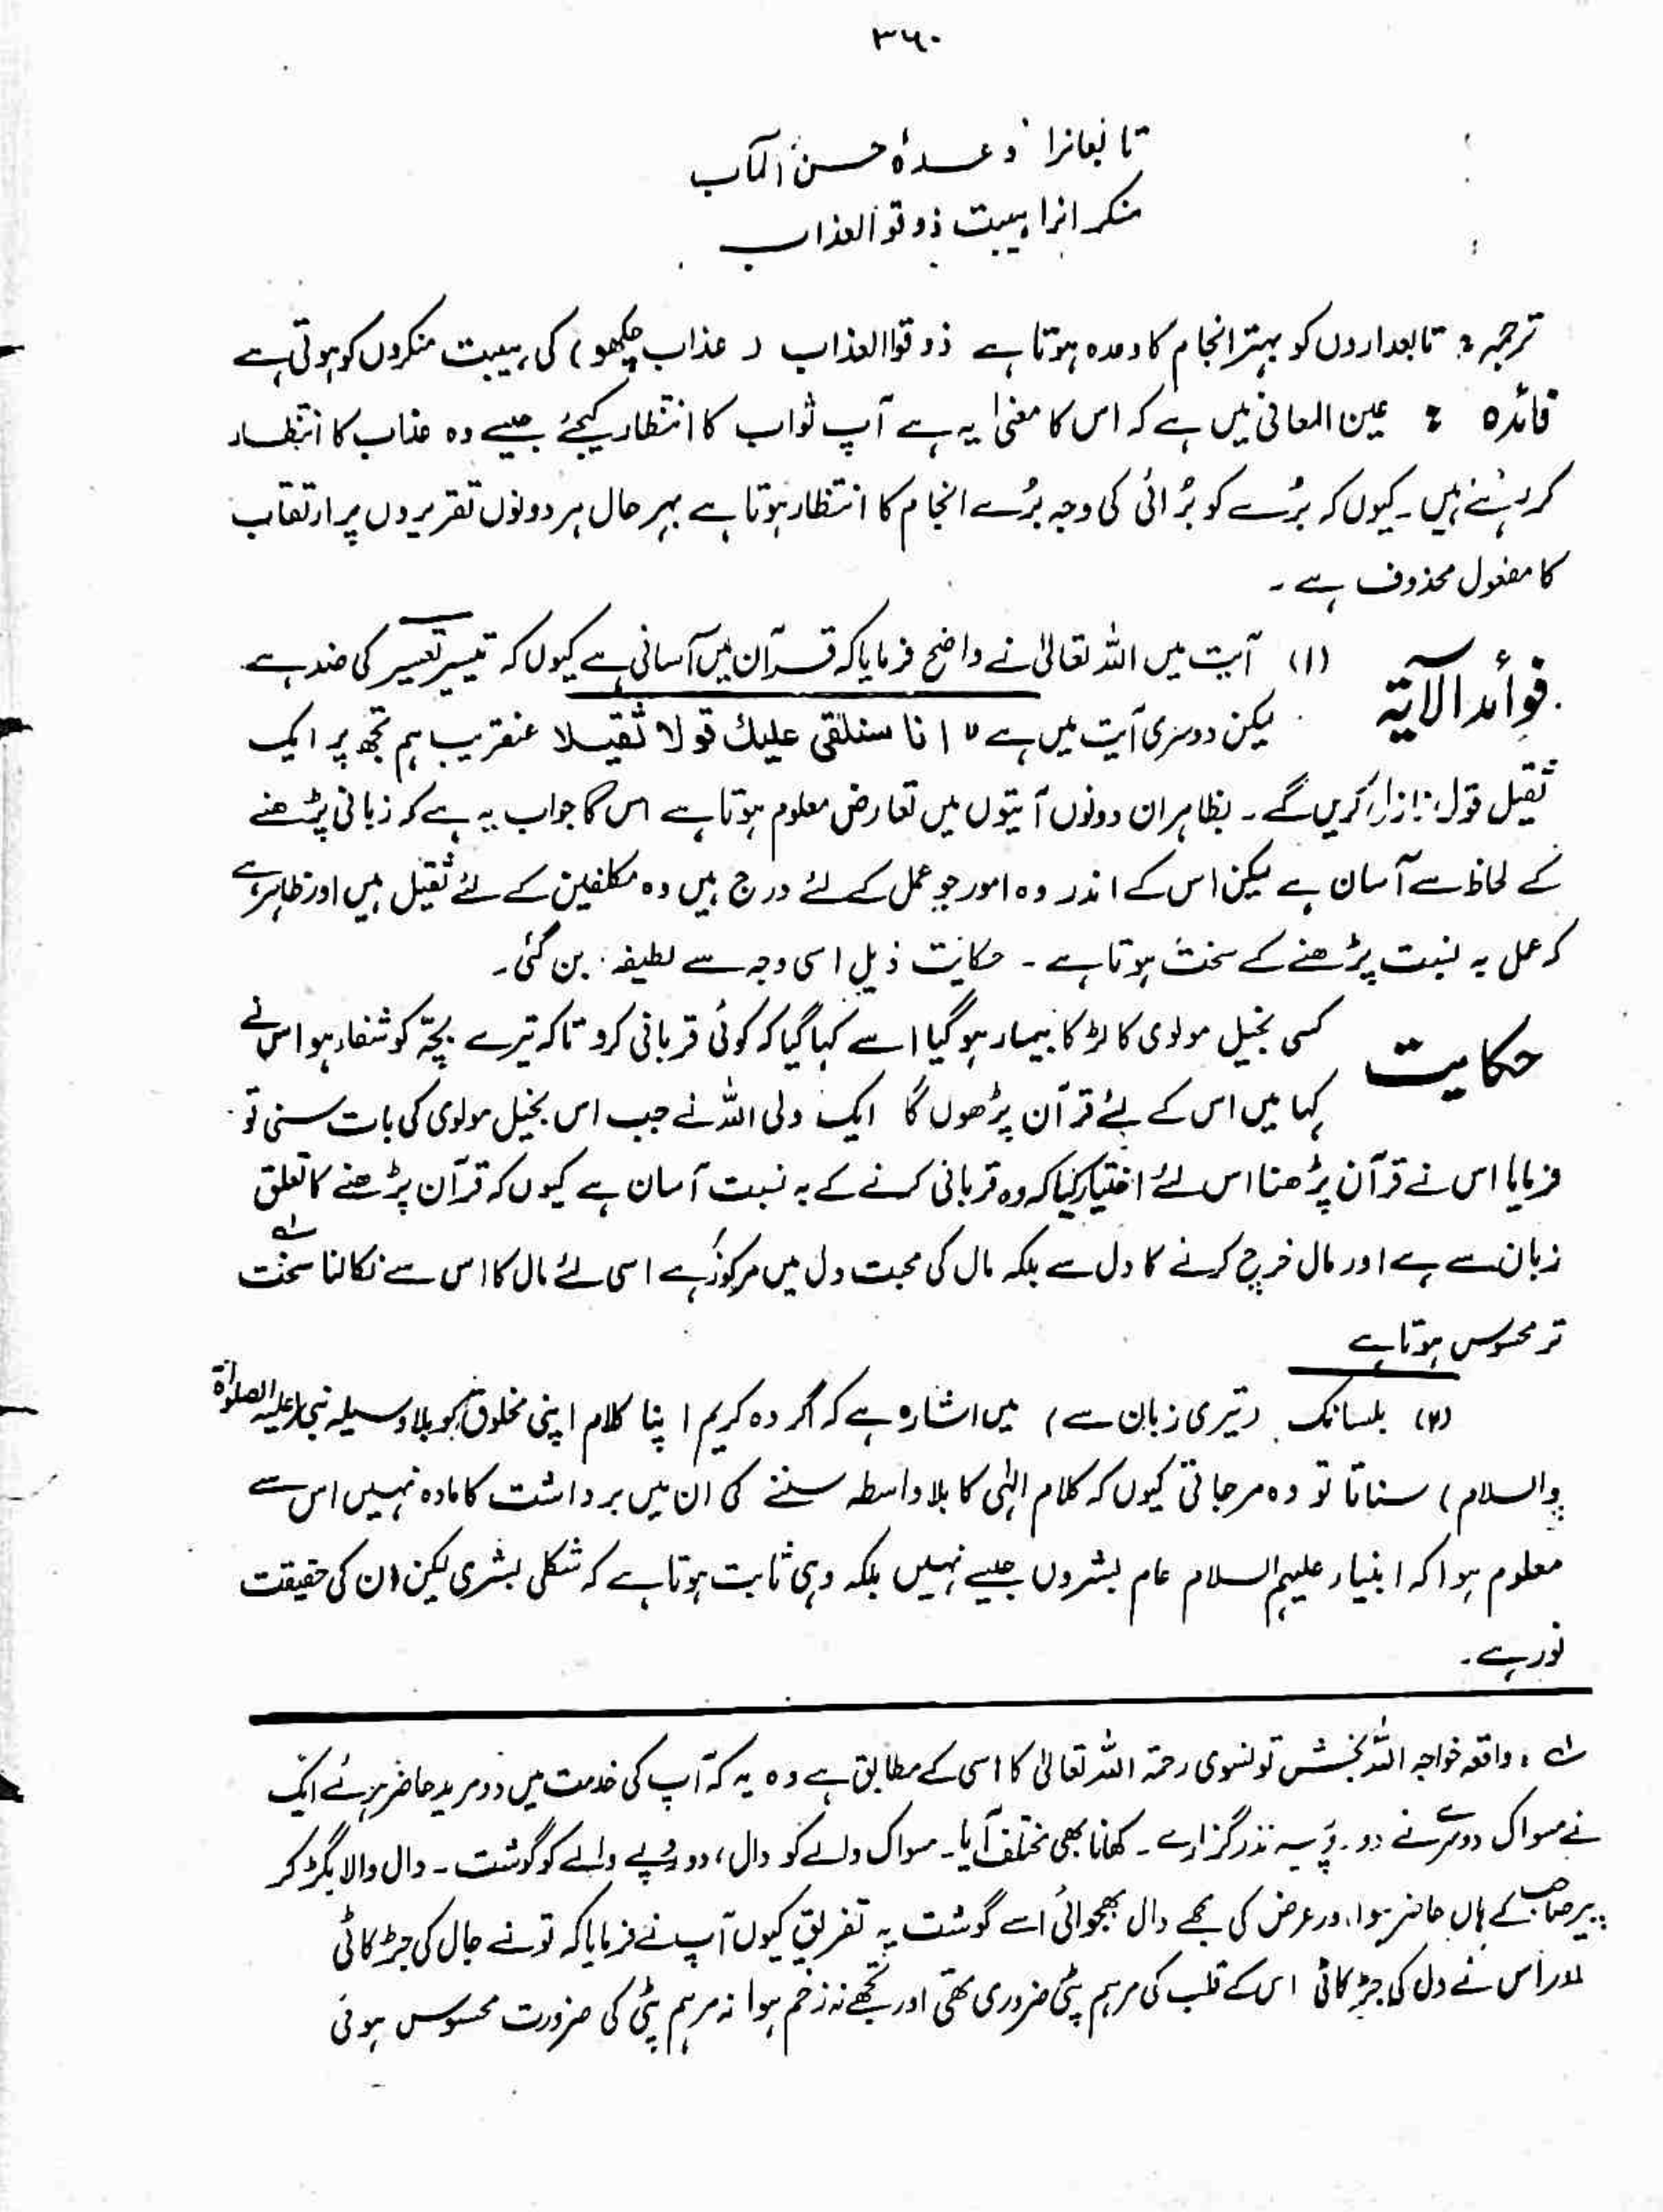 ۳۶۰
تابعانرا وعدۂ حسن المآب
منکرانرا ہیبت ذوقوا العذاب
ترجمہ: تابعداروں کو بہتر انجام کا وعدہ ہوتا ہے ذوقوا العذاب (عذاب چکھو) کی ہیبت منکروں کو ہوتی ہے
فائدہ : عین المعانی میں ہے کہ اس کا معنیٰ یہ ہے آپ ثواب کا انتظار کیجئے جیسے وہ عذاب کا انتظار
کر رہے ہیں۔ کیوں کہ بُرے کو بُرائی کی وجہ بُرے انجام کا انتظار ہوتا ہے بہرحال ہر دونوں تقریروں پر ارتقاب
کا مفعول محذوف ہے۔
فوائد الآیۃ (۱) آیت میں اللہ تعالیٰ نے واضح فرمایا کہ قرآن میں آسانی ہے کیوں کہ تیسیر تعسیر کی ضد ہے۔
لیکن دوسری آیت میں ہے " انا سنلقی علیك قولا ثقیلا عنقریب ہم تجھ پر ایک
ثقیل قول نازل کریں گے۔ بظاہر ان دونوں آیتوں میں تعارض معلوم ہوتا ہے اس کا جواب یہ ہے کہ زبانی پڑھنے
کے لحاظ سے آسان ہے لیکن اس کے اندر وہ امور جو عمل کے لئے درج ہیں وہ مکلفین کے لئے ثقیل ہیں اور ظاہر ہے
کہ عمل بہ نسبت پڑھنے کے سخت ہوتا ہے۔ حکایت ذیل اسی وجہ سے لطیفہ بن گئی۔
حکایت کسی بخیل مولوی کا لڑکا بیمار ہو گیا اسے کہا گیا کہ کوئی قربانی کرو تاکہ تیرے بچّہ کو شفاء ہو اس نے
کہا میں اس کے لئے قرآن پڑھوں گا ایک ولی اللہ نے جب اس بخیل مولوی کی بات سنی تو
فرمایا اس نے قرآن پڑھنا اس لئے اختیار کیا کہ وہ قربانی کرنے کے بہ نسبت آسان ہے کیوں کہ قرآن پڑھنے کا تعلق
زبان سے ہے اور مال خرچ کرنے کا دل سے بلکہ مال کی محبت دل میں مرکوز ہے اسی لئے مال کا اس سے نکالنا سخت
تر محسوس ہوتا ہے
(۲) بلسانک (تیری زبان سے) میں اشارہ ہے کہ اگر وہ کریم اپنا کلام اپنی مخلوق کو بلا وسیلہ نبی (علیہ الصلوٰۃ
والسلام) سناتا تو وہ مرجاتی کیوں کہ کلام الٰہی کا بلا واسطہ سننے کی ان میں برداشت کا مادہ نہیں اس سے
معلوم ہوا کہ انبیاء علیہم السلام عام بشروں جیسے نہیں بلکہ وہی ثابت ہوتا ہے کہ شکلی بشری لیکن ان کی حقیقت
نور ہے۔
لہ: واقعہ خواجہ اللہ بخش تونسوی رحمۃ اللہ تعالیٰ کا اسی کے مطابق ہے وہ یہ کہ آپ کی خدمت میں دو مرید حاضر ہوئے ایک
نے مسواک دوسرے نے دو روپیہ نذر گزارے۔ کھانا بھی مختلف آیا۔ مسواک والے کو دال، دو روپے والے کو گوشت۔ دال والا بگڑ کر
پیر صاحب کے ہاں حاضر ہوا، اور عرض کی مجھے دال بھجوائی اسے گوشت یہ تفریق کیوں آپ نے فرمایا کہ تو نے جال کی جڑ کاٹی
اور اس نے دل کی جڑ کاٹی اس کے قلب کی مرہم پٹی ضروری تھی اور تجھے نہ زخم ہوا نہ مرہم پٹی کی ضرورت محسوس ہوئی